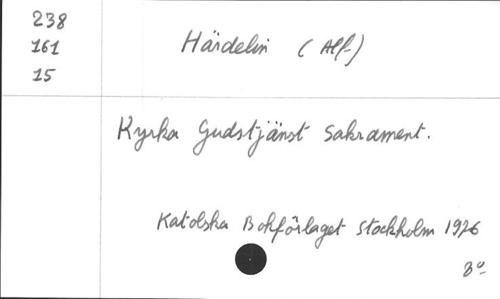 238
161
15
Härdelin (Alf.)
Kyrka Gudstjänst Sakrament.
Katolska Bokförlaget Stockholm 1976
8°